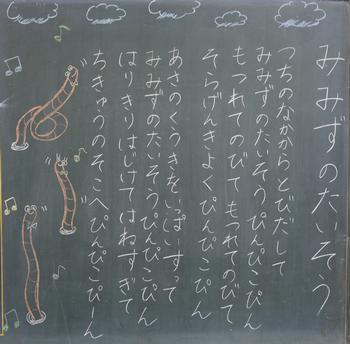 みみずのたいそう
つちのなかからとびだして
みみずのたいそうぴんぴこぴん
もつれてのびてもつれてのびて
そらげんきよくぴんぴこぴん
あさのくうきをいっぱいすって
みみずのたいそうぴんぴこぴん
はりきりはじけてはねすぎて
ちきゅうのそこへぴんぴこぴーん